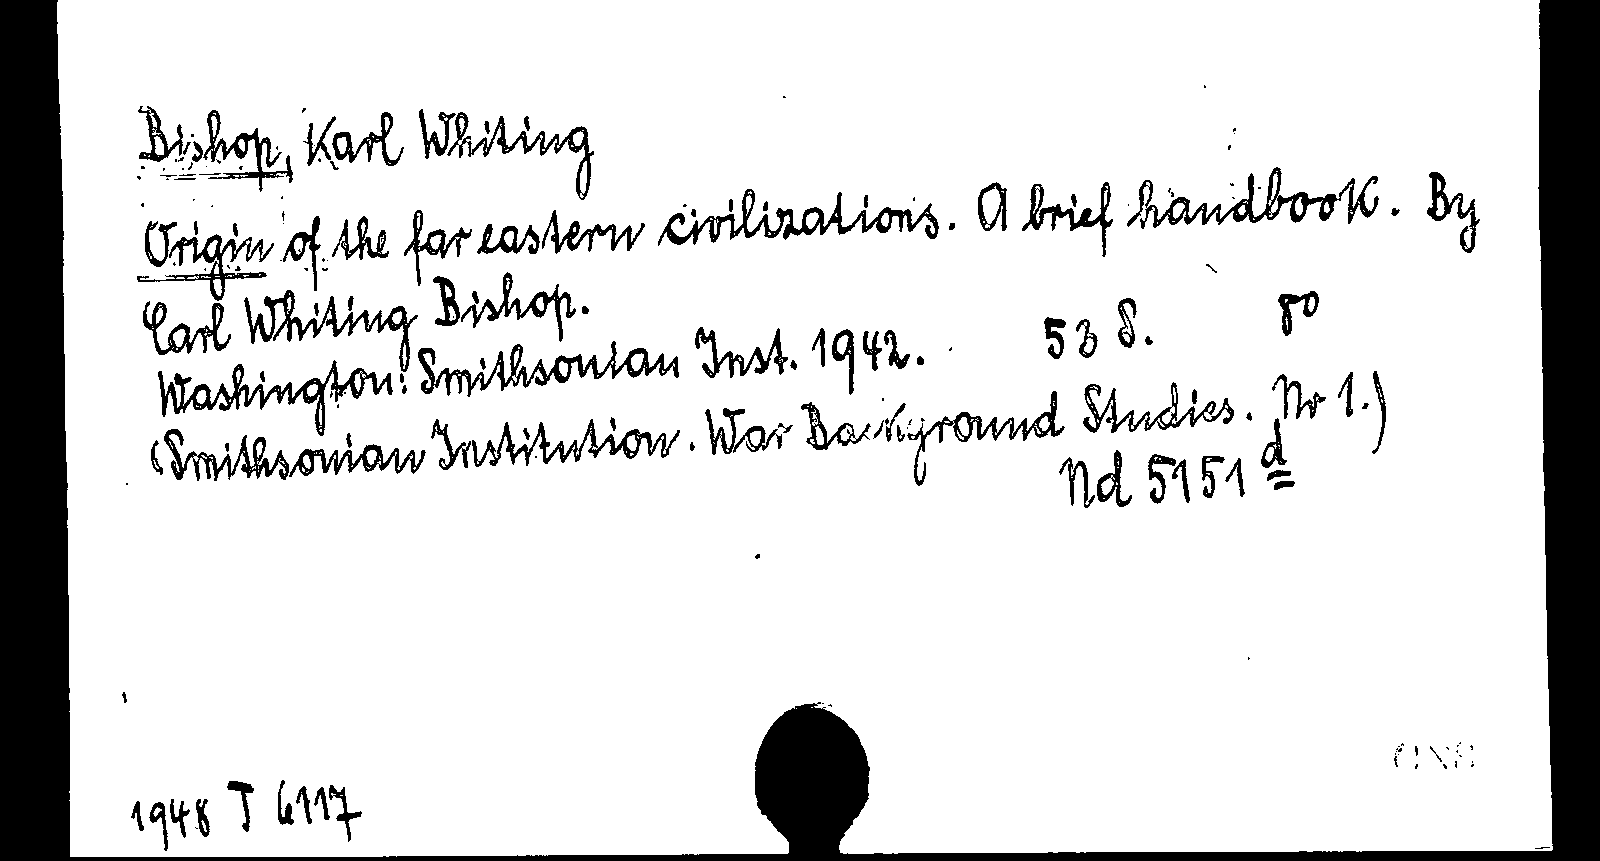 Bishop, Karl Whiting
Origin of the far eastern civilizations. A brief handbook. By
Carl Whiting Bishop.
Washington: Smithsonian Inst. 1942. 53 S. 8°
(Smithsonian Institution. War Background Studies. Nr 1.)
Nd 5151 d
1948 T 6117